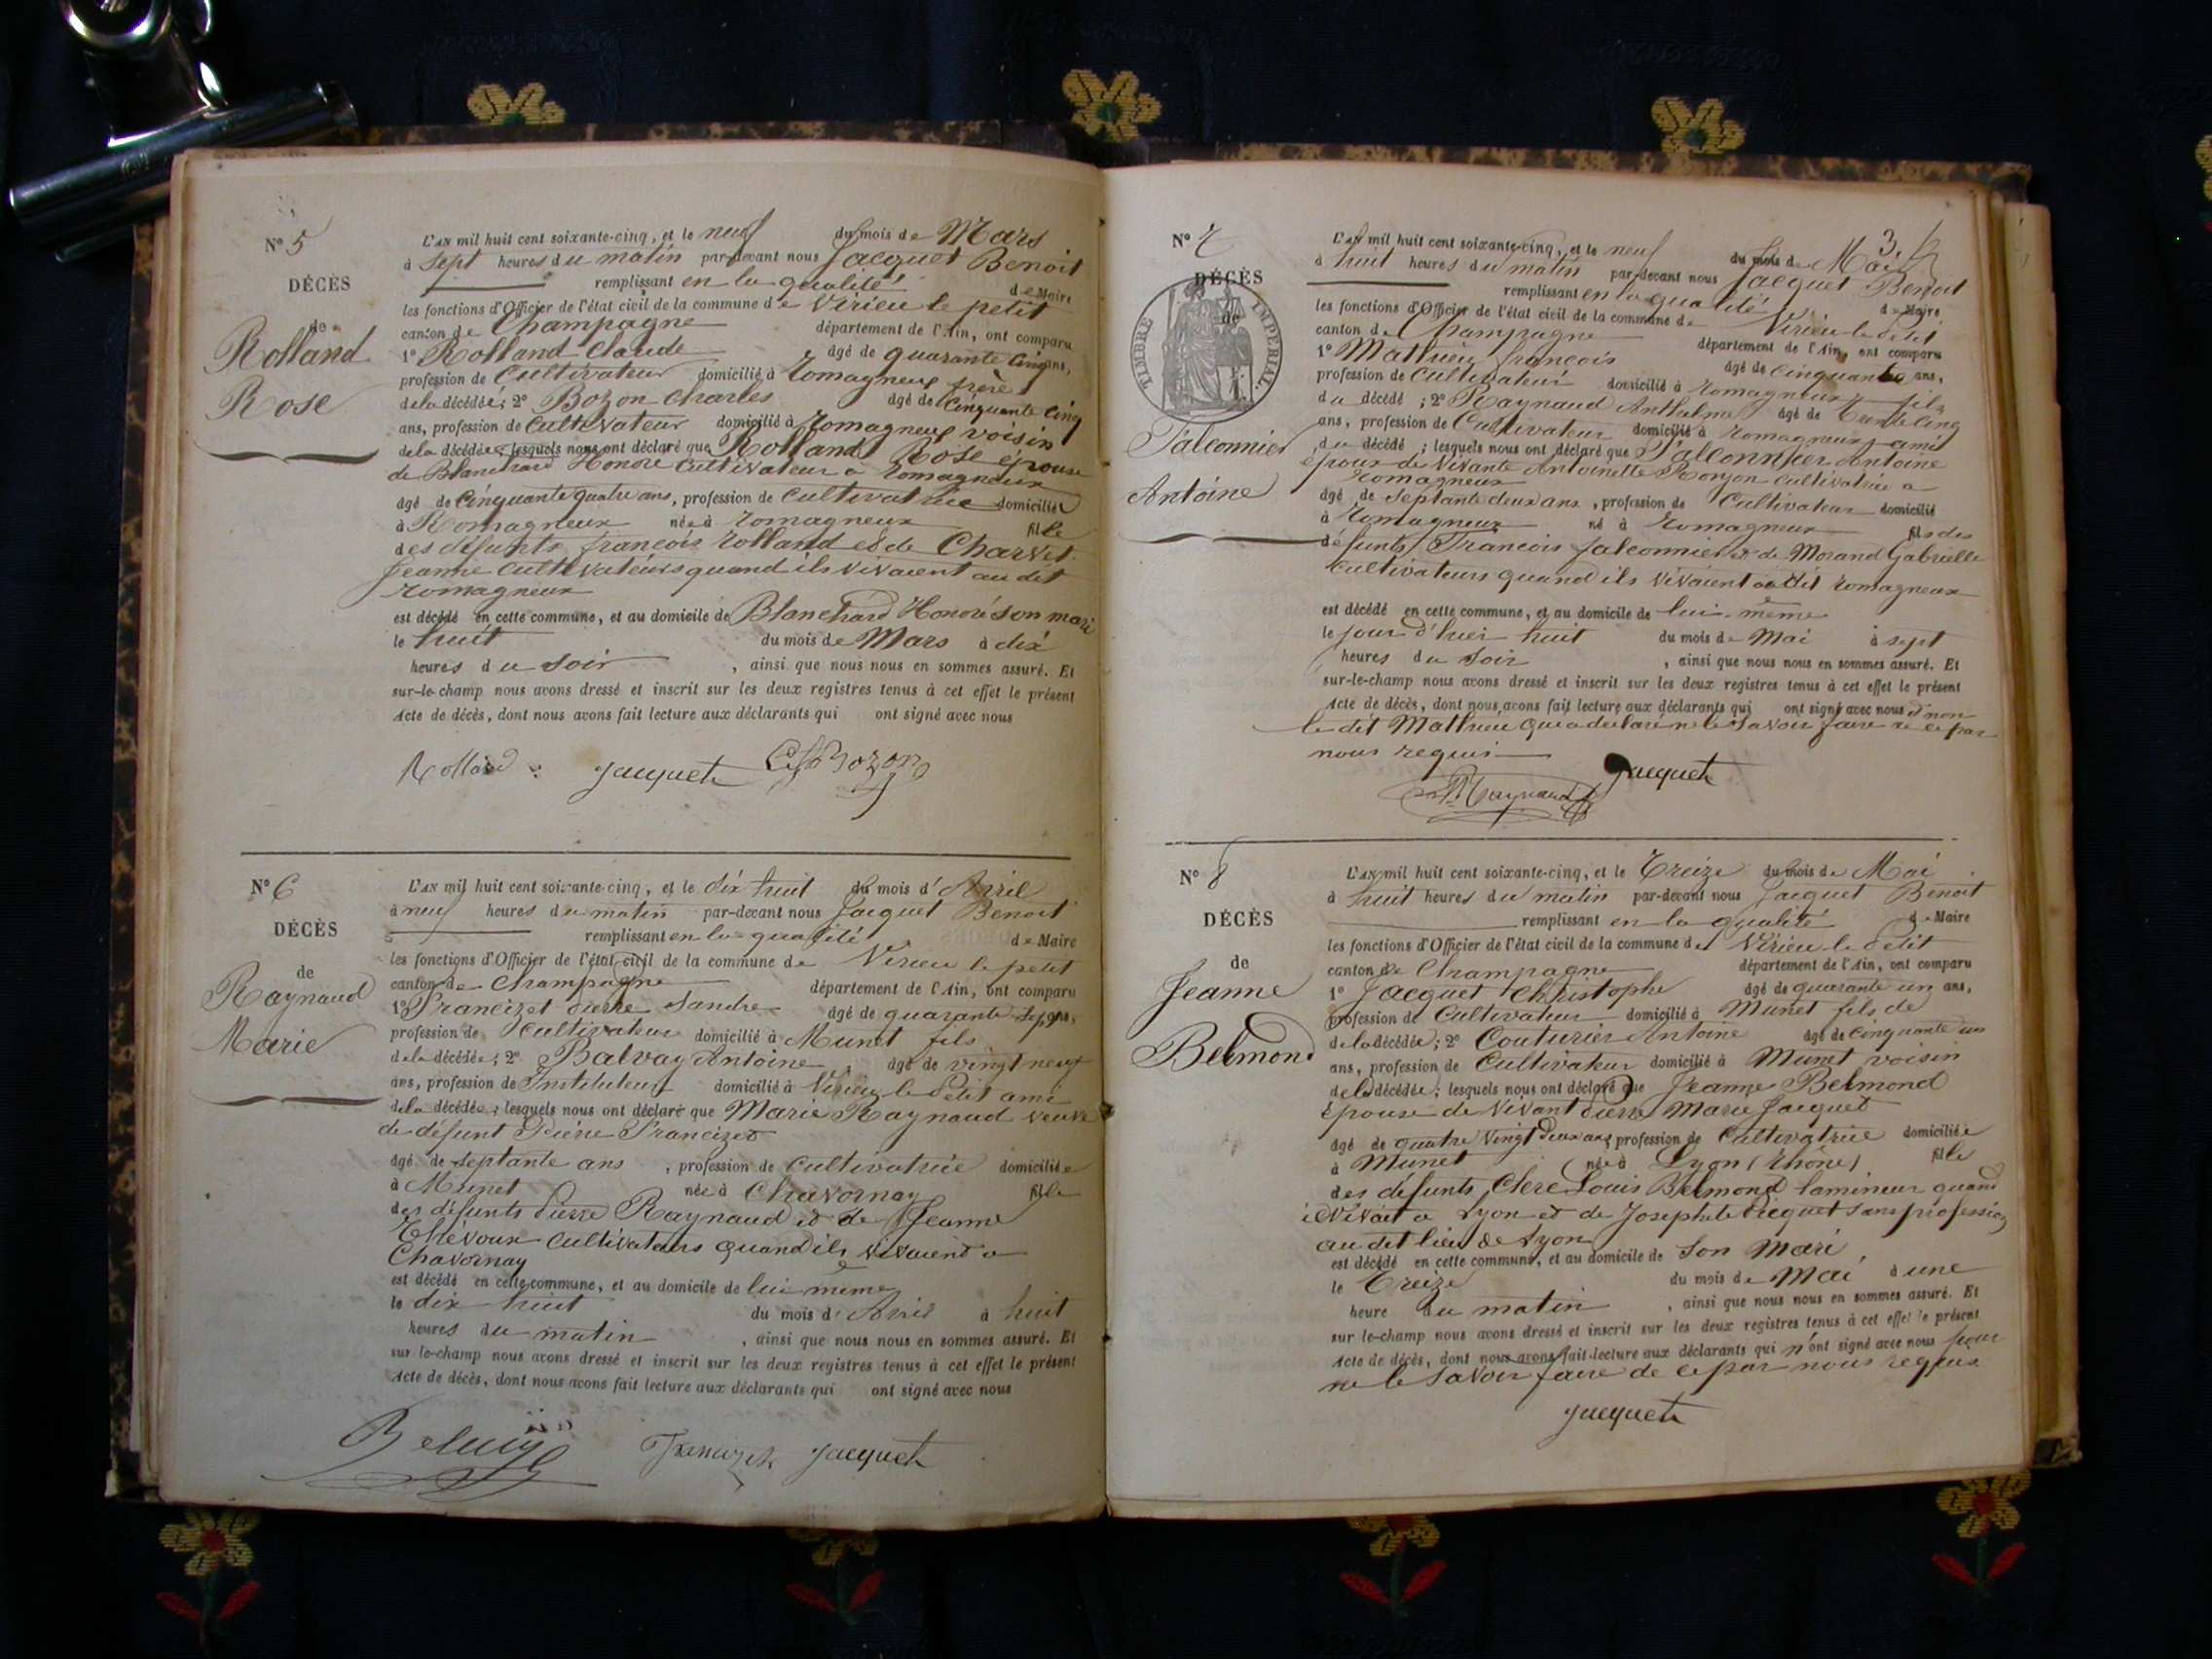 N° 5
DÉCÈS
de
Rolland
Rose
L'AN mil huit cent soixante-cinq, et le neuf du mois de Mars
à sept heures du matin par-devant nous Jacquet Benoit
remplissant en la qualité de Maire
les fonctions d'Officier de l'état civil de la commune de Virieu le petit
canton de Champagne département de l'Ain, ont comparu
1° Rolland Claude âgé de quarante cinq ans,
profession de Cultivateur domicilié à Romagneux frère
de la décédée; 2° Bozon Charles âgé de Cinquante Cinq
ans, profession de Cultivateur domicilié à Romagneux voisin
de la décédée; lesquels nous ont déclaré que Rolland Rose épouse
de Blanchard Honoré Cultivateur à Romagneux
âgé de Cinquante quatre ans, profession de Cultivatrice domiciliée
à Romagneux née à Romagneux fille
des défunts françois Rolland et de Charvet
Jeanne Cultivateurs quand ils vivaient au dit
Romagneux
est décédé en cette commune, et au domicile de Blanchard Honoré son mari
le huit du mois de Mars à dix
heures du soir, ainsi que nous nous en sommes assuré. Et
sur-le-champ nous avons dressé et inscrit sur les deux registres tenus à cet effet le présent
Acte de décès, dont nous avons fait lecture aux déclarants qui ont signé avec nous
Rolland Jacquet Ch Bozon
N° 6
DÉCÈS
de
Raynaud
Marie
L'AN mil huit cent soixante-cinq, et le dix huit du mois d'Avril
à neuf heures du matin par-devant nous Jacquet Benoit
remplissant en la qualité de Maire
les fonctions d'Officier de l'état civil de la commune de Virieu le petit
canton de Champagne département de l'Ain, ont comparu
1° Francizet Pierre Sandre âgé de quarante sept ans,
profession de Cultivateur domicilié à Munet fils
de la décédée; 2° Balvay Antoine âgé de vingt neuf
ans, profession de Instituteur domicilié à Virieu le Petit ami
de la décédée; lesquels nous ont déclaré que Marie Raynaud veuve
de défunt Pierre Francizet
âgé de septante ans, profession de cultivatrice domiciliée
à Munet née à Chavornay fille
des défunts Pierre Raynaud et de Jeanne
Thévoux Cultivateurs quand ils vivaient à
Chavornay
est décédé en cette commune, et au domicile de lui même
le dix huit du mois d'Avril à huit
heures du matin, ainsi que nous nous en sommes assuré. Et
sur-le-champ nous avons dressé et inscrit sur les deux registres tenus à cet effet le présent
Acte de décès, dont nous avons fait lecture aux déclarants qui ont signé avec nous
Francizet Jacquet
3.
N° 7
DÉCÈS
de
TIMBRE IMPERIAL.
Falconnier
Antoine
L'AN mil huit cent soixante-cinq, et le neuf du mois de Mai
à huit heures du matin par-devant nous Jacquet Benoit
remplissant en la qualité de Maire
les fonctions d'Officier de l'état civil de la commune de Virieu le Petit
canton de Champagne département de l'Ain, ont comparu
1° Mathieu françois âgé de Cinquante ans,
profession de Cultivateur domicilié à Romagneux fils
du décédé; 2° Raynaud Anthelme âgé de Trente Cinq
ans, profession de Cultivateur domicilié à Romagneux ami
du décédé; lesquels nous ont déclaré que Falconnier Antoine
époux de vivante Antoinette Ronjon Cultivatrice à
Romagneux
âgé de Septante deux ans, profession de Cultivateur domicilié
à Romagneux né à Romagneux fils des
défunts François falconnier et de Morand Gabrielle
cultivateurs quand ils vivaient au dit Romagneux
est décédé en cette commune, et au domicile de lui même
le jour d'hier huit du mois de Mai à sept
heures du Soir, ainsi que nous nous en sommes assuré. Et
sur-le-champ nous avons dressé et inscrit sur les deux registres tenus à cet effet le présent
Acte de décès, dont nous avons fait lecture aux déclarants qui ont signé avec nous et non
le dit Mathieu qui a déclaré ne le savoir faire de ce par
nous requis
Raynaud Jacquet
N° 8
DÉCÈS
de
Jeanne
Belmond
L'AN mil huit cent soixante-cinq, et le Treize du mois de Mai
à huit heures du matin par-devant nous Jacquet Benoit
remplissant en la qualité de Maire
les fonctions d'Officier de l'état civil de la commune de Virieu le Petit
canton de Champagne département de l'Ain, ont comparu
1° Jacquet Christophe âgé de quarante un ans,
profession de Cultivateur domicilié à Munet fils de
de la décédée; 2° Couturier Antoine âgé de Cinquante un
ans, profession de Cultivateur domicilié à Munet voisin
de la décédée; lesquels nous ont déclaré que Jeanne Belmond
épouse de vivant Pierre Marie Jacquet
âgé de quatre vingt deux ans profession de Cultivatrice domiciliée
à Munet née à Lyon (Rhône) fille
des défunts Clere Louis Belmond lamineur quand
il vivait à Lyon et de Josephete Picquet sans profession
au dit lieu de Lyon
est décédé en cette commune, et au domicile de son Mari
le Treize du mois de Mai à une
heure du matin, ainsi que nous nous en sommes assuré. Et
sur le-champ nous avons dressé et inscrit sur les deux registres tenus à cet effet le présent
Acte de décès, dont nous avons fait lecture aux déclarants qui n'ont signé avec nous pour
ne le savoir faire de ce par nous requis
Jacquet